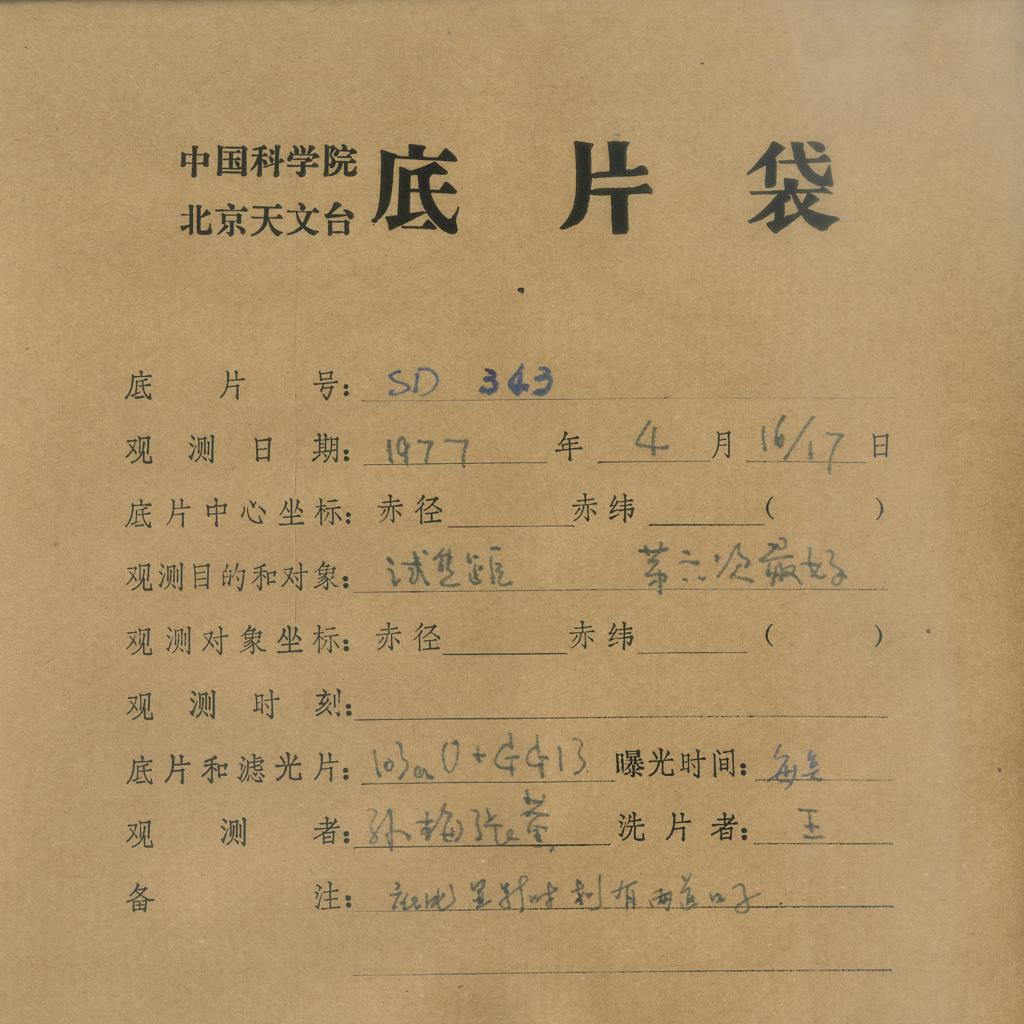 中国科学院
北京天文台
底片袋
底片号: SD 343
观测日期: 1977年 4月 16/17日
底片中心坐标: 赤径 赤纬 ( )
观测目的和对象: 试焦距 第六次最好
观测对象坐标: 赤径 赤纬 ( )
观测时刻:
底片和滤光片: 103aO+GG13 曝光时间:
观测者: 孙 梅 张 洗片者: 王
备注: 有两道口子